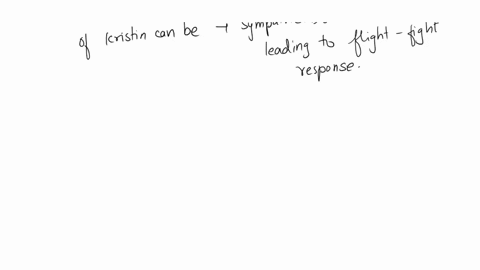 of Kristin can be →
leading to flight - fight
response.